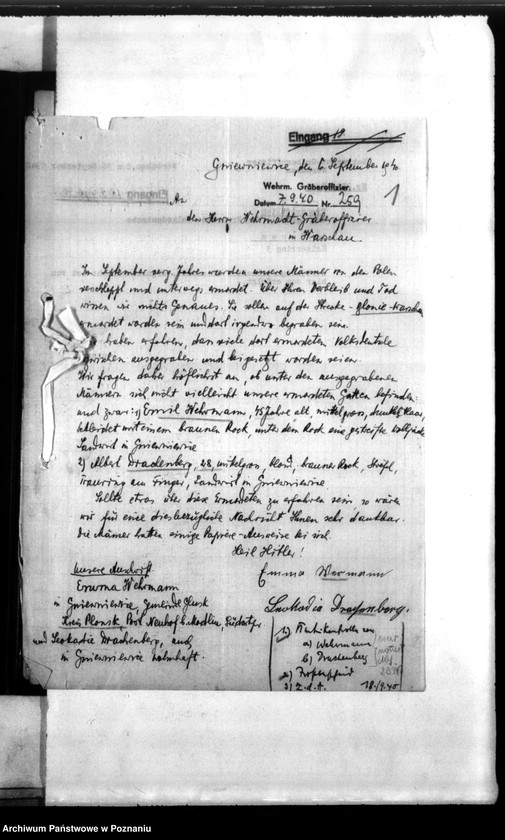 Eingang 18
Gniewniewice, den 6. September 1940
Wehrm. Gräberoffizier
Datum 7.9.40 Nr. 259
1
An
den Herrn Wehrmacht-Gräberoffizier
in Warschau.
Im September vorg. Jahres wurden unsere Männer von den Polen
verschleppt und unterwegs ermordet. Über ihren Verbleib und Tod
wissen wir nichts Genaues. Sie sollen auf der Strecke - Błonie - Warschau
ermordet worden sein und dort irgendwo begraben sein.
haben erfahren, dass viele dort ermordeten Volksdeutsche
ausgegraben und beigesetzt worden seien.
Wir fragen daher höflichst an, ob unter den ausgegrabenen
Männern sich nicht vielleicht unsere ermordeten Gatten befinden:
und zwar: 1) Emil Wehrmann, 45 Jahre alt, mittelgross, dunkles Haar,
bekleidet mit einem braunen Rock, unter dem Rock eine gestreifte
Landwirt in Gniewniewice
2) Albert Drachenberg, 28, mittelgross, blond, brauner Rock, Stiefel,
Trauring am Finger, Landwirt in Gniewniewice
Sollte etwas über diese Ermordeten zu erfahren sein so wären
wir für eine diesbezügliche Nachricht Ihnen sehr dankbar.
Die Männer hatten einige Papiere - Ausweise bei sich.
Heil Hitler!
Unsere Anschrift
Emma Wermann
Emma Wehrmann
in Gniewniewice, Gemeinde Głusk
Leokadia Drachenberg.
Kreis Plonsk, Post Neuhof
und Leokadie Drachenberg, auch
in Gniewniewice wohnhaft.
a) Wehrmann
b) Drachenberg
3) Z.d.A.
18./9.40
Archiwum Państwowe w Poznaniu